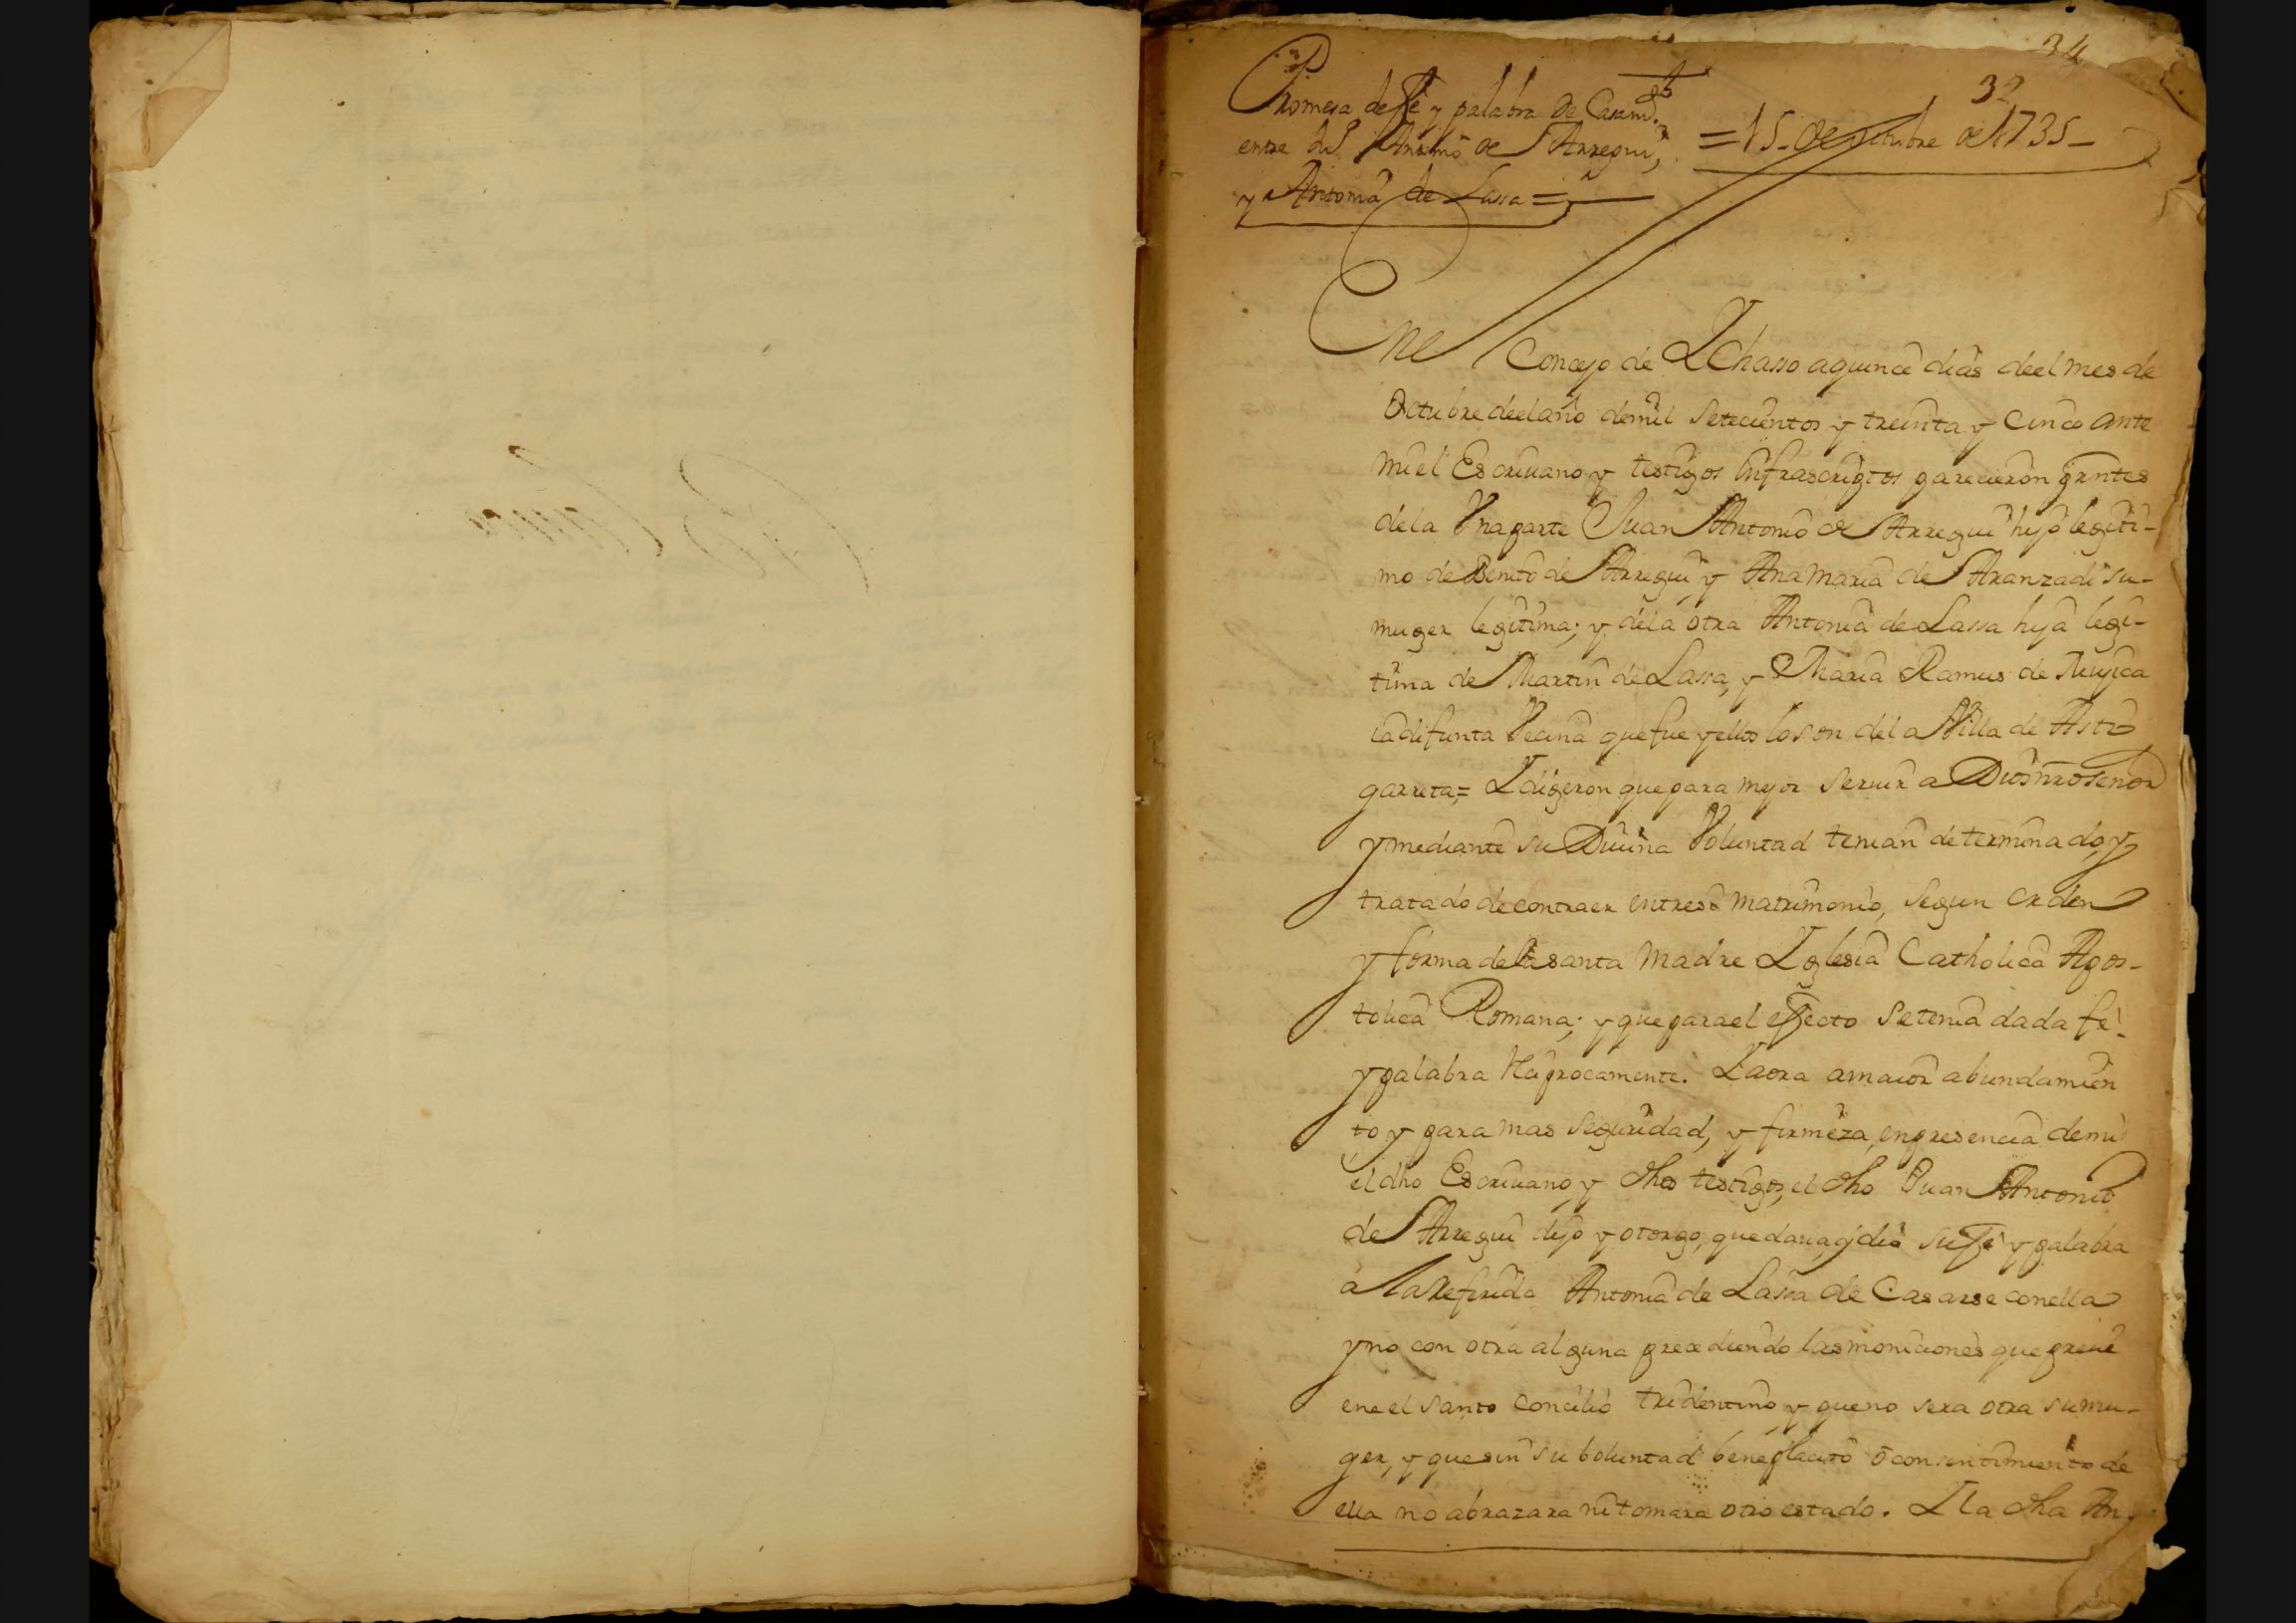 34
32
Promesa de fe y palabra de Casam.to
entre Ju.º Antonio de Arregui,
y Antonia de Lassa =
= 15 de octubre de 1735 –
En el Concejo de Ychasso a quince dias de el mes de
Octubre de el año de mil setecientos y treinta y cinco ante
mi el Escriuano y testigos Infrascriptos parecieron presntes
de la Vna parte Juan Antonio de Arregui hijo legiti-
mo de Benito de Arregui y Ana Maria de Aranzadi su-
muger legitima; y de la otra Antonia de Lassa hija legi-
tima de Martin de Lassa, y Maria Ramus de Mujica
ia difunta Vecina que fue y ellos lo son de la Villa de Asti
garreta,= Y digeron que para mejor seruir a Dios nro señor
y mediante su Diuina Voluntad tenian determinado, y
tratado de contraer entre si matrimonio, segun orden
y forma de la santa Madre Yglesia Catholica Apos-
tolica Romana; y que para el effecto se tenia dada fe
y palabra Reciprocamente. Y aora a maior abundamien
to y para mas seguridad, y firmeza, en presencia de mi
el dho Escriuano y dhos testigos, el dho Juan Antonio
de Arregui dijo y otorgo, que daua, y dio su fe y palabra
a la Referida Antonia de Lassa de Casarse con ella
y no con otra alguna precediendo las moniciones que preui
ene el santo Concilio tridentino y que no sera otra su mu-
ger, y que sin su boluntad beneplacito o consentimiento de
ella no abrazara ni tomara otro estado. Y la dha An-